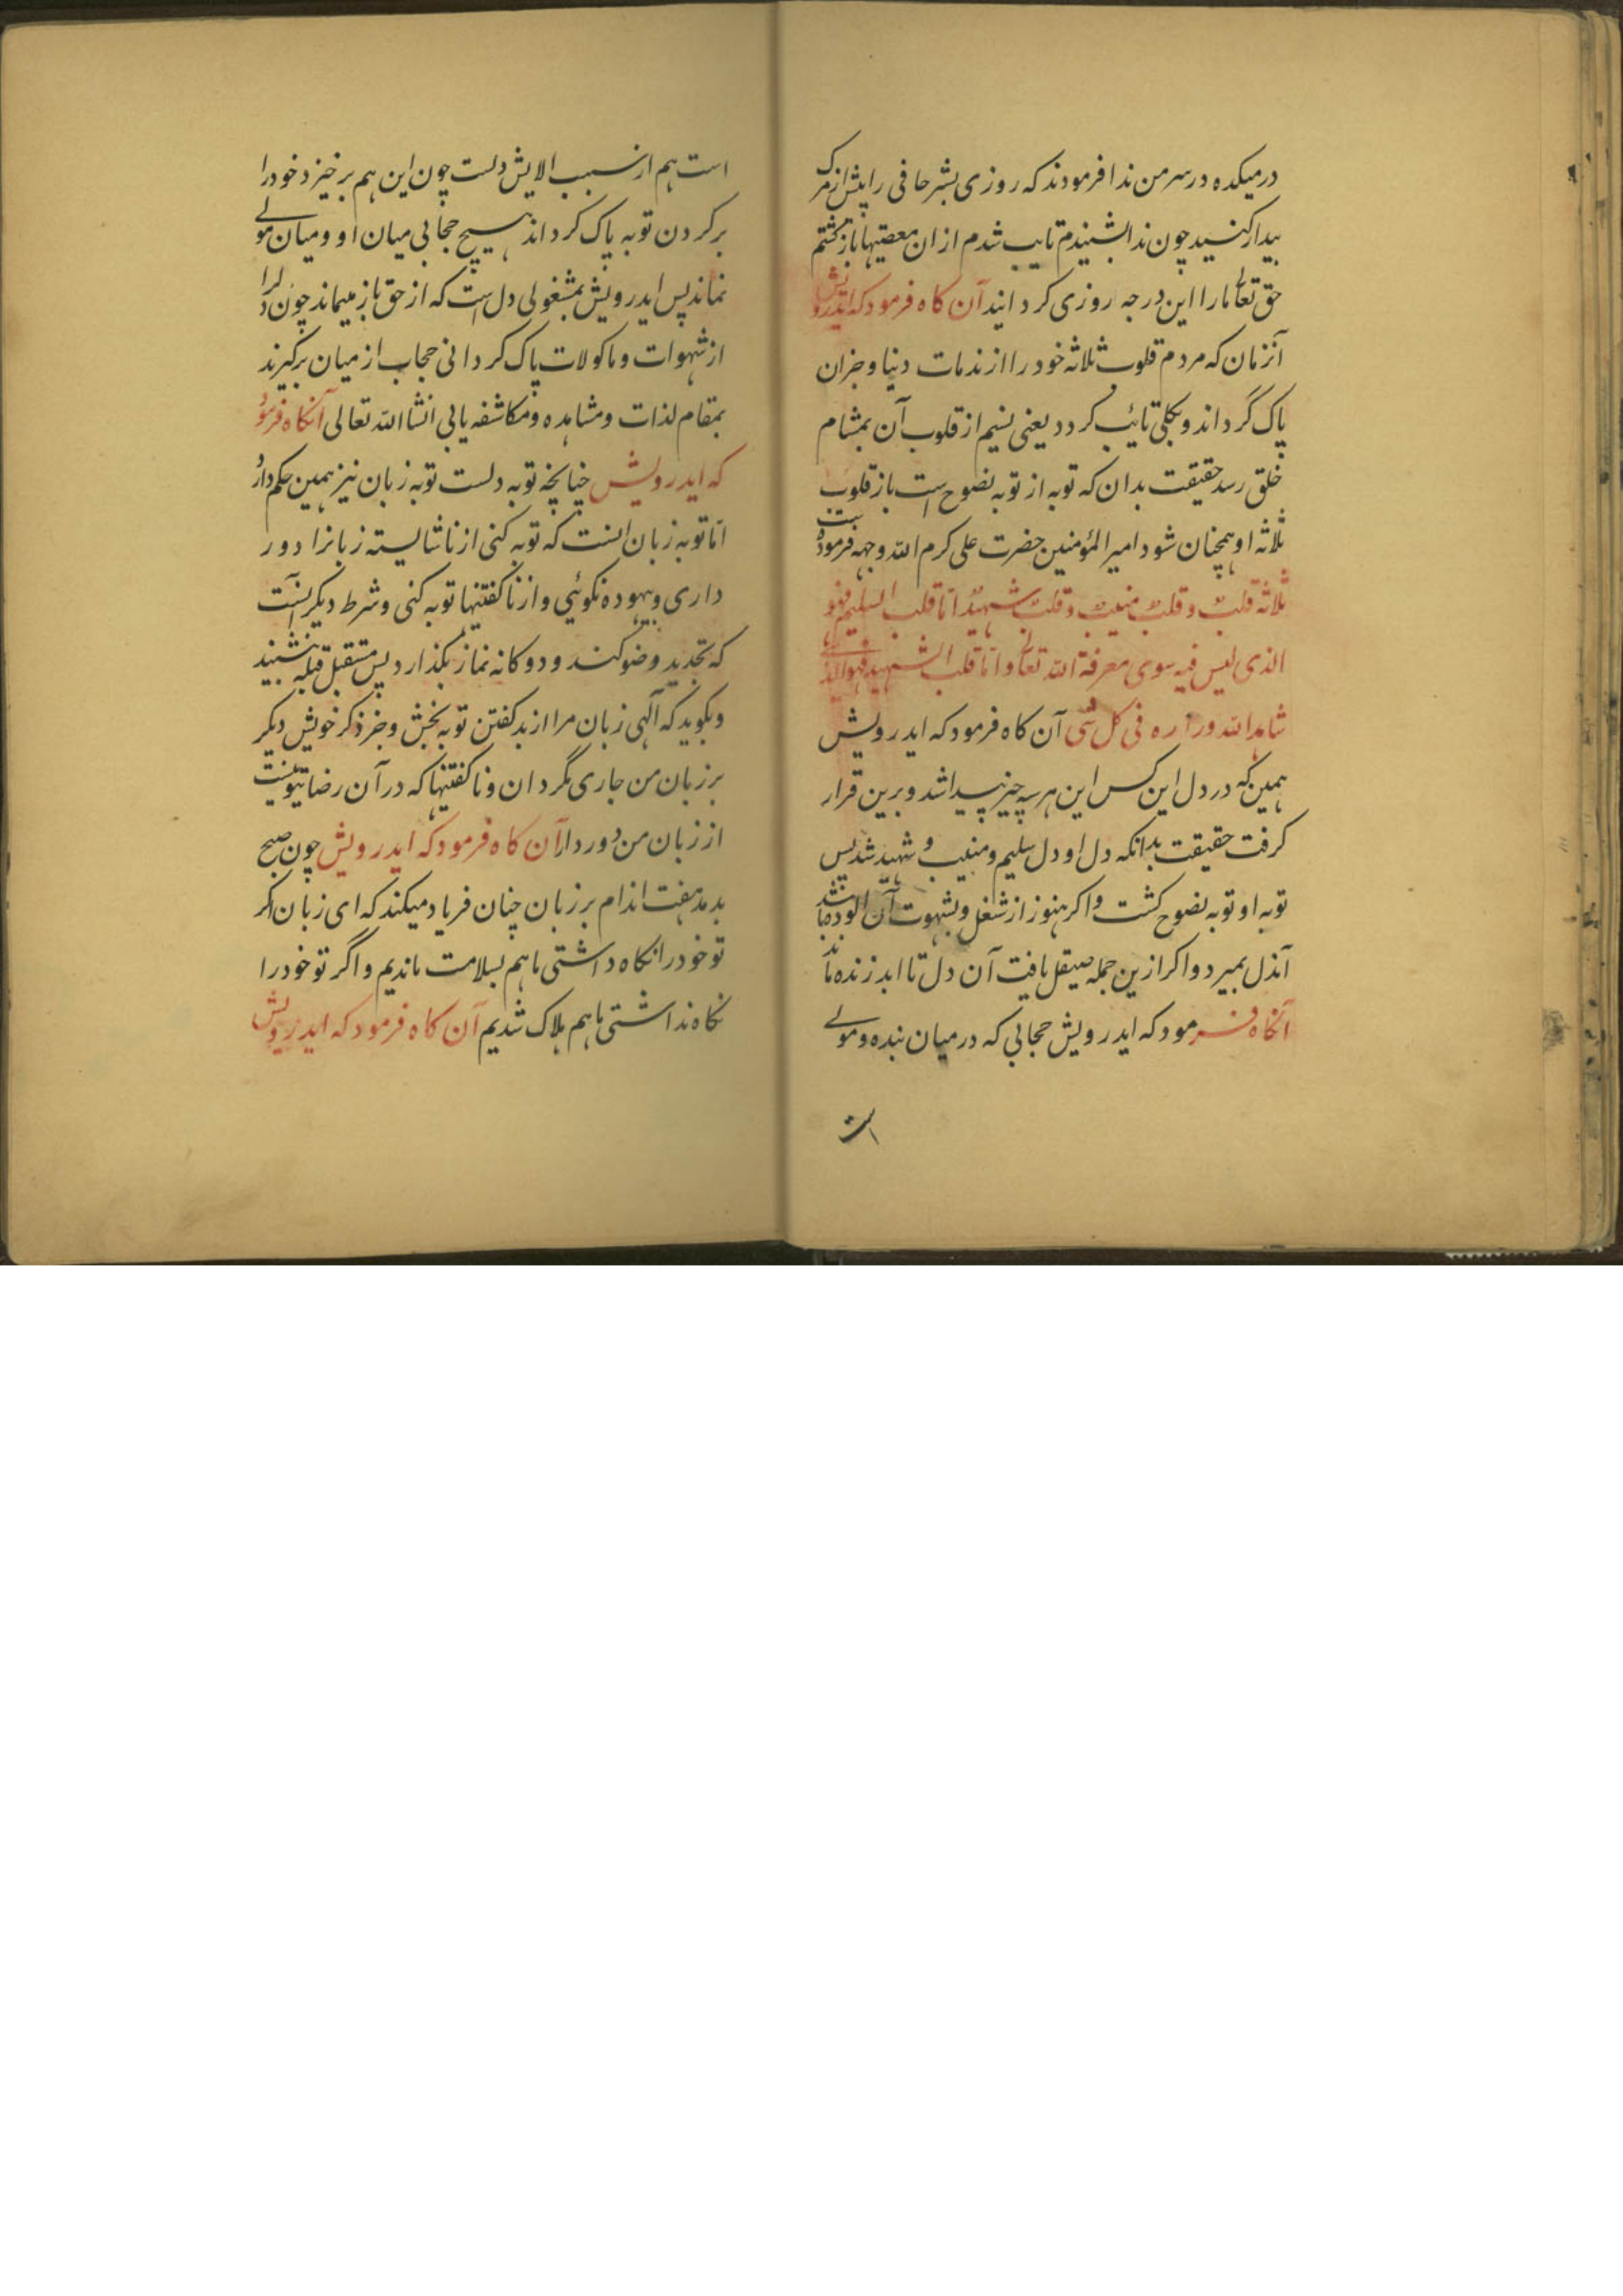 درمیکده در سر من ندا فرمودند که روزی بشر حافی را پیش از مرک
بیدار کنید چون ندا بشنیدم تایب شدم از ان معصیتها باز کشتم
حق تعالی مارا این درجه روزی کردانید آن کاه فرمود که ایدرویش
آنزمان که مردم قلوب ثلاثه خود را از ندمات دنیا و جزان
پاک گرداند و بکلی تائب کردد یعنی نسیم از قلوب آن بمشام
خلق رسد حقیقت بدان که توبه از توبه نصوح است باز قلوب
ثلاثه او همچنان شود امیر المؤمنین حضرت علی کرم الله وجهه فرموده
ثلاثة قلبٌ وقلبٌ منیبٌ وقلبٌ شهیدٌ اما قلب السلیم فهو
الذی لیس فیه سوی معرفة الله تعالی واما قلب الشهید فهو الذی
شاهد الله وراره فی کل شی آن کاه فرمود که ایدرویش
همین که در دل این کس این هر سه چیز پیدا شد و برین قرار
کرفت حقیقت بدانکه دل او دل سلیم و منیب و شهید شد پس
توبه او توبه نصوح کشت و اکر هنوز از شغل و بشهوت آن الوده باشد
آندل بمیرد و اکر ازین جمله صیقل یافت آن دل تا ابد زنده ماند
آنکاه فرمود که ایدرویش حجابی که در میان بنده و مولی
است
است هم از سبب الایش دلست چون این هم برخیزد خود را
برکردن توبه پاک کرداند هیچ حجابی میان او و میان مولی
نماند پس ایدرویش بمشغولی دل است که از حق باز میماند چون دلرا
از شهوات و ماکولات پاک کردانی حجاب از میان برکیرند
بمقام لذات و مشاهده و مکاشفه یابی انشا الله تعالی آنکاه فرمود
که ایدرویش چنانچه توبه دلست توبه زبان نیز همین حکم دارد
اما توبه زبان انست که توبه کنی از ناشایسته زبانرا دور
داری و بیهوده نکوئی و از ناکفتنیها توبه کنی و شرط دیکر آنست
که تجدید وضو کند و دوکانه نماز بکذارد پس مستقبل قبله بنشیند
و بکوید که آلهی زبان مرا از بد کفتن توبه بخش و جز ذکر خویش دیکر
بر زبان من جاری مگردان و ناکفتنیها که در آن رضای تو نیست
از زبان من دور دار آن کاه فرمود که ایدرویش چون صبح
بدمد هفت اندام بر زبان چنان فریاد میکند که ای زبان اکر
تو خود را نکاه داشتی ما هم بسلامت ماندیم و اگر تو خود را
نکاه نداشتی ما هم هلاک شدیم آن کاه فرمود که ایدرویش